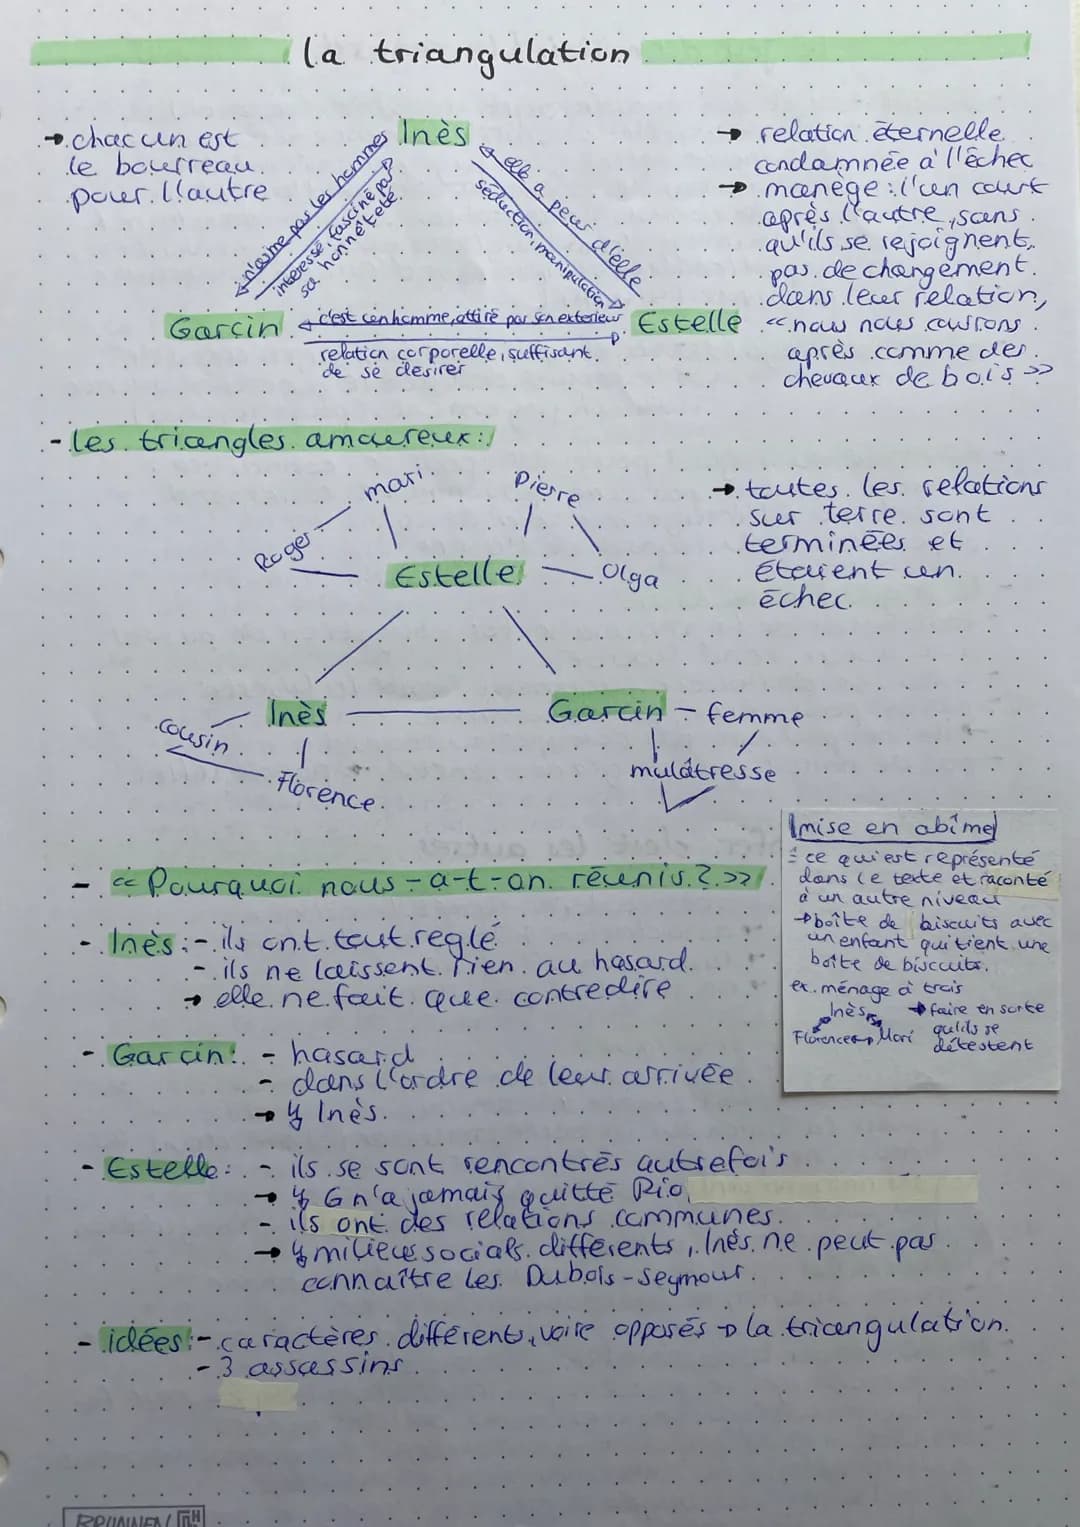 la triangulation
→ chacun est
le bourreau
pour l'autre
Inès
n'aime pas les hommes
interessé, fasciné par
sa honnêteté
elle a peur d'elle
séduction, manipulation
Garcin
c'est un homme, attiré par son exterieur
Estelle
relation corporelle, suffisant
de se desirer
→ relation éternelle
condamnée à l'échec
→ manège: l'un court
après l'autre, sans
qu'ils se rejoignent,
pas de changement
dans leur relation,
<< nous nous courons
après comme des
chevaux de bois >>
- les triangles amoureux:
mari
Pierre
Roger
Estelle
Olga
→ toutes les relations
sur terre sont
terminées et
étaient un
échec
Inès
Garcin - femme
cousin
Florence
mulâtresse
- << Pourquoi nous-a-t-on réunis? >>
- Inès: - ils ont tout reglé
- ils ne laissent rien au hasard
→ elle ne fait que contredire
- Garcin: - hasard
- dans l'ordre de leur arrivée
→ ↯ Inès
- Estelle: - ils se sont rencontrés autrefois
→ ↯ G n'a jamais quitté Rio
- ils ont des relations communes
→ ↯ milieux socials différents, Inès ne peut pas
connaître les Dubois-Seymour
- idées: - caractères différents, voire opposés → la triangulation
- 3 assassins
mise en abîme
= ce qui est représenté
dans le texte et raconté
à un autre niveau
→ boîte de biscuits avec
un enfant qui tient une
boîte de biscuits.
ex. ménage à trois
Inès → faire en sorte
Florence ↔ Mari qu'ils se
détestent
BRUNNEN